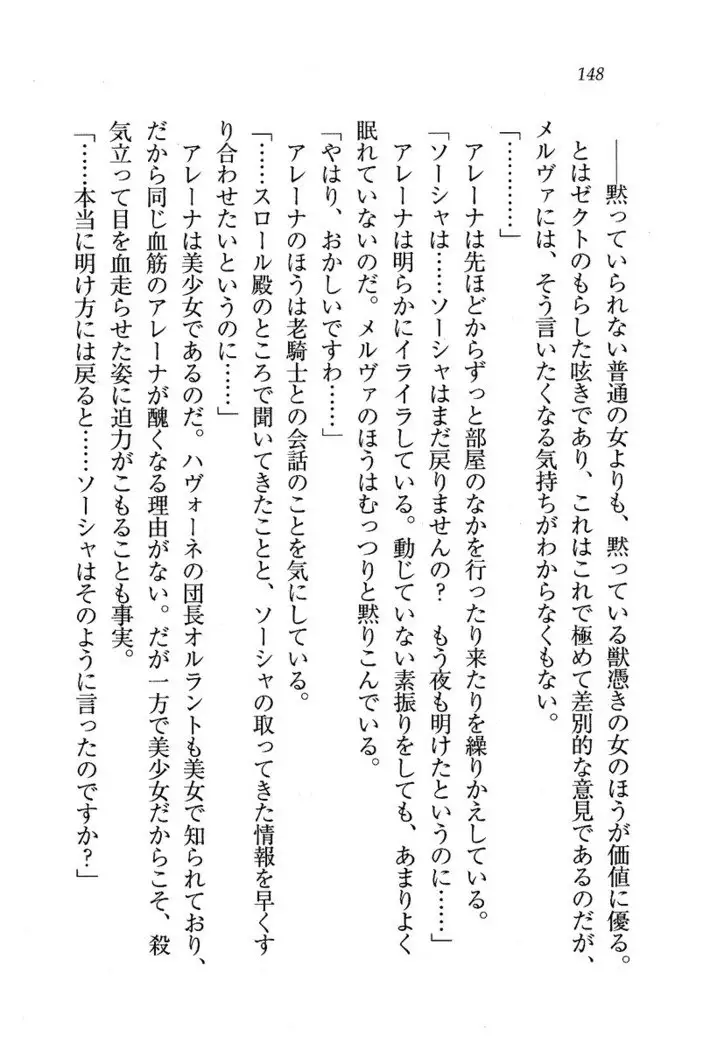 148
――黙っていられない普通の女よりも、黙っている獣憑きの女のほうが価値に優る。
とはゼクトのもらした呟きであり、これはこれで極めて差別的な意見であるのだが、
メルヴァには、そう言いたくなる気持ちがわからなくもない。
「…………」
アレーナは先ほどからずっと部屋のなかを行ったり来たりを繰りかえしている。
「ソーシャは……ソーシャはまだ戻りませんの？　もう夜も明けたというのに……」
アレーナは明らかにイライラしている。動じていない素振りをしても、あまりよく
眠れていないのだ。メルヴァのほうはむっつりと黙りこんでいる。
「やはり、おかしいですわ……」
アレーナのほうは老騎士との会話のことを気にしている。
「……スロール殿のところで聞いてきたことと、ソーシャの取ってきた情報を早くす
り合わせたいというのに……」
アレーナは美少女であるのだ。ハヴォーネの団長オルラントも美女で知られており、
だから同じ血筋のアレーナが醜くなる理由がない。だが一方で美少女だからこそ、殺
気立って目を血走らせた姿に迫力がこもることも事実。
「……本当に明け方には戻ると……ソーシャはそのように言ったのですか？」